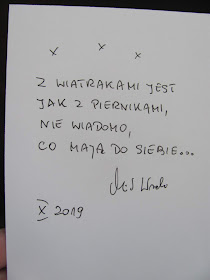 x x x
Z WIATRAKAMI JEST
JAK Z PIERNIKAMI,
NIE WIADOMO,
CO MAJĄ DO SIEBIE...
X 2019